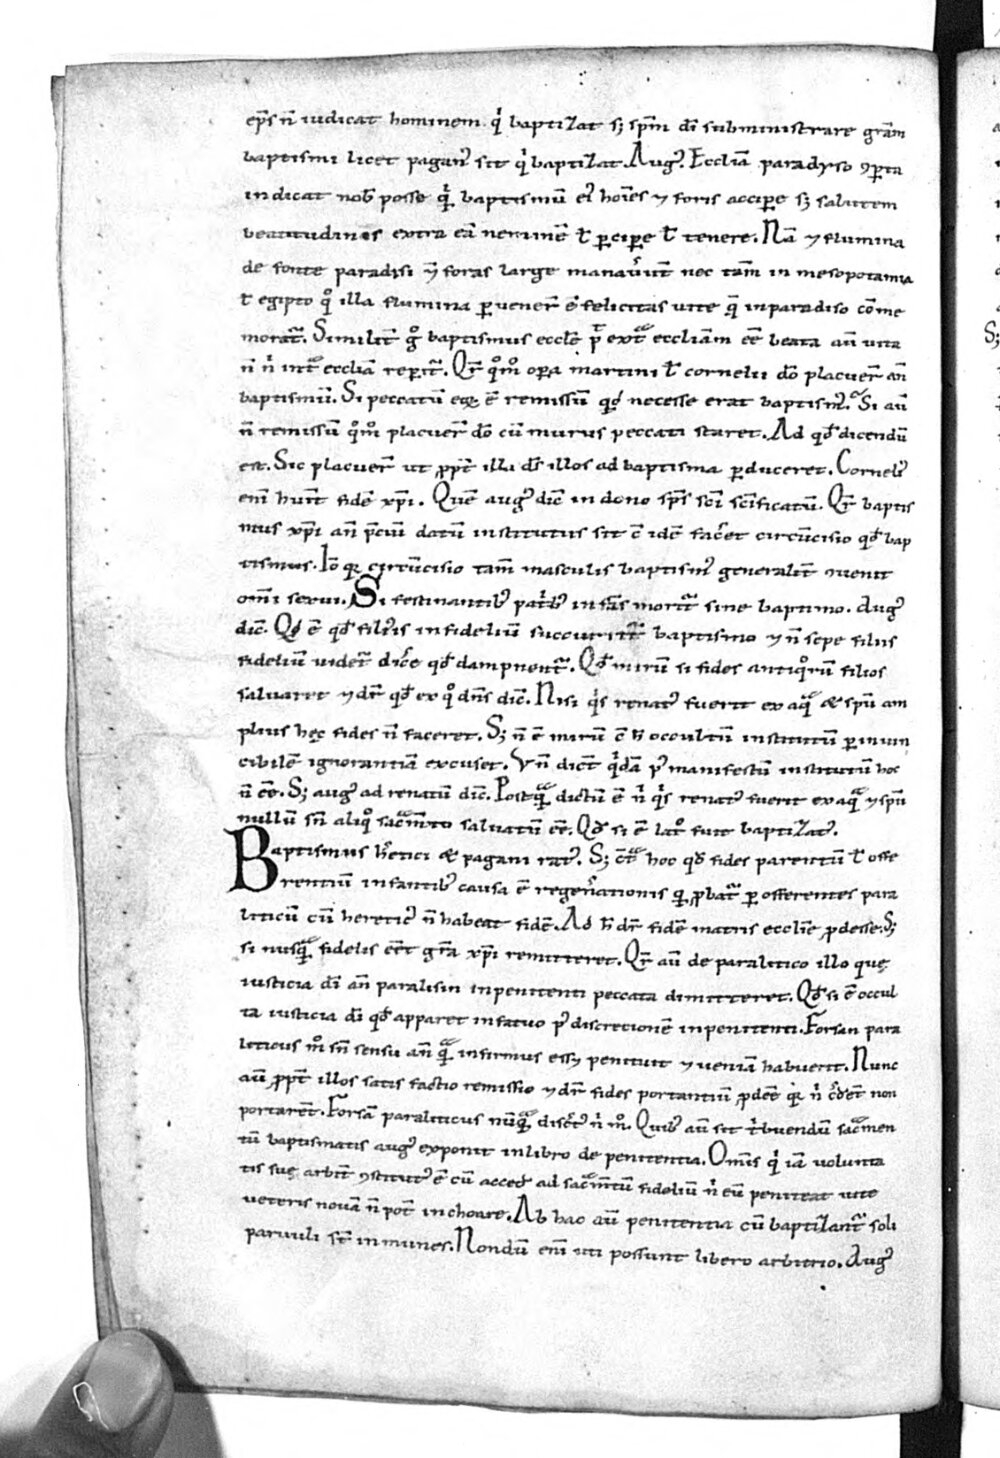 ep̄s n̄ iudicat hominem qͥ baptizat s; sp̄m dī subministrare gr̄am
baptismi licet paganꝰ sit qͥ baptizat. Augꝰ. Eccl̄iam paradyso ꝯꝑta
indicat nob̄ posse q̄ͥ baptismū eiꝰ hoīes ⁊ foris accipe s; salutem
beatitudinis extra eā neminē ł ꝑcipe ł tenere. Nā ⁊ flumina
de fonte paradisi ⁊̄ foras large manaver̄t nec tam̄ in mesopotamia
ł egipto qͦ illa flumina ꝑvener̄ ē felicitas vite q̄ in paradiso cōme
morat᷑. Similit̄ gͦ baptismus eccl̄e p̄t extᷓ eccl̄iam eē beata aū vita
n̄ nͥ intᷓ eccl̄iā reꝑit᷑. Qr̄ qͦmͦ oꝑa martini ł cornelii dō placuer̄ an̄
baptismū. Si peccatū eꝰ ē remissū qͥd necesse erat baptism̄. Si aū
n̄ remissū qͦmͦ placuer̄ dō cū murus peccati staret. Ad qd̄ dicendū
est. Sic placuer̄ ut ꝓpt̄ illi d̄s illos ad baptisma ꝑduceret. Cornelꝰ
enī huit̄ fidē xp̄i. Quē augꝰ dic̄ in dono sp̄s sc̄i sc̄ificatū. Qr̄ baptis
mus xp̄i an̄ p̄ciū datū institutus sit c̄ idē faceret circūcisio qd̄ bap
tismus. Iō qr̄ circūcisio tam̄ masculis baptismꝰ generalit̄ ꝯvenit
omī sexui. Si festinantibꝰ patͥbꝰ infās morit᷑ sine baptimo. Augꝰ
dic̄. Qd̄ ē qd̄ filiꝰ infideliū succurrit᷑ baptismo ⁊ n̄ sepe filiis
fideliū videt᷑ dice qd̄ dampnent᷑. Qd̄ mirū si fides antiqͦrū filios
salvaret ⁊ dr̄ qd̄ ex qͦ dn̄s dic̄. Nisi qͥs renatꝰ fuerit ex aqᷓ & sp̄u am
plius hęc fides n̄ faceret. S; n̄ ē mirū c̄ h̄ occultū institutū ꝑ invin
cibilē ignorantiā excuset. Vn̄ dic̄t qͥdā pꝰ manifestū institutū hoc
n̄ cē. S; augꝰ ad renatū dic̄. Postqᷓ dictū ē nͥ qͥs renatꝰ fuerit ex aqᷓ ⁊ sp̄u
nullū sn̄ aliqͦ sacᷓm̄to salvatū eē. Qd̄ si ē latͦ fuit baptizatꝰ.
Baptismus hr̄etici & pagani ratꝰ. S; c̄tᷓ hoc qd̄ fides parentū ł offe
rentiū infantibꝰ causa ē regenͤrationis qͥ ꝓbat᷑ ꝑ offerentes para
liticū cū hereticꝰ n̄ habeat fidē. Ad h̄ dr̄ fidē matris eccl̄ie ꝓdesse. S;
si nusqᷓ fidelis eēt gr̄a xp̄i remitteret. Qr̄ aū de paralitico illo quę
iusticia dī an̄ paralisin inpenitenti peccata dimitteret. Qd̄ si ē occul
ta iusticia dī qd̄ apparet in fatuo pꝰ discretionē inpenitenti. Forsan para
liticus mͦ sn̄ sensu an̄ qᷓ infirmus ess; penituit ⁊ veniā habuerit. Nunc
aū ꝓpt̄ illos satisfactio remissio ⁊ dr̄ fides portantiū ꝓdeē qr̄ nͥ c̄dēt non
portarēt. Forsā paraliticus nūqᷓ discͤt nͥ mͦ. Quibꝰ aū sit tͥbuendū sacᷓmen
tū baptismatis augꝰ exponit in libro de penitentia. Omīs qͥ iā volunta
tis suę arbit̄ ꝯstitutꝰ ē cū acced̄ ad sacᷓm̄tū fideliū nͥ eū peniteat vite
veteris novā n̄ pot̄ inchoare. Ab hac aū penitentia cū baptizant᷑ soli
parvuli st̄ inmunes. Nondū enī uti possunt libero arbitrio. Augꝰ